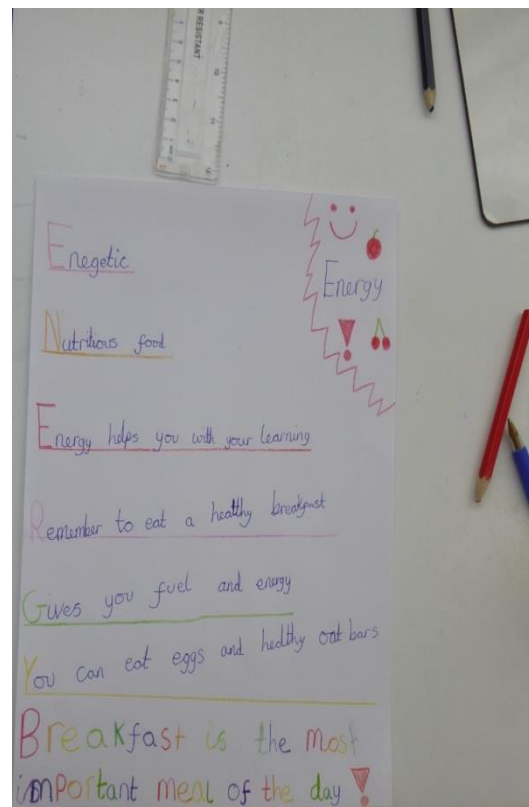 R RESISTANT
Enegetic
Energy
Nutritious food
Energy helps you with your learning
Remember to eat a healthy breakfast
Gives you fuel and energy
You can eat eggs and healthy oat bars
Breakfast is the most
important meal of the day!